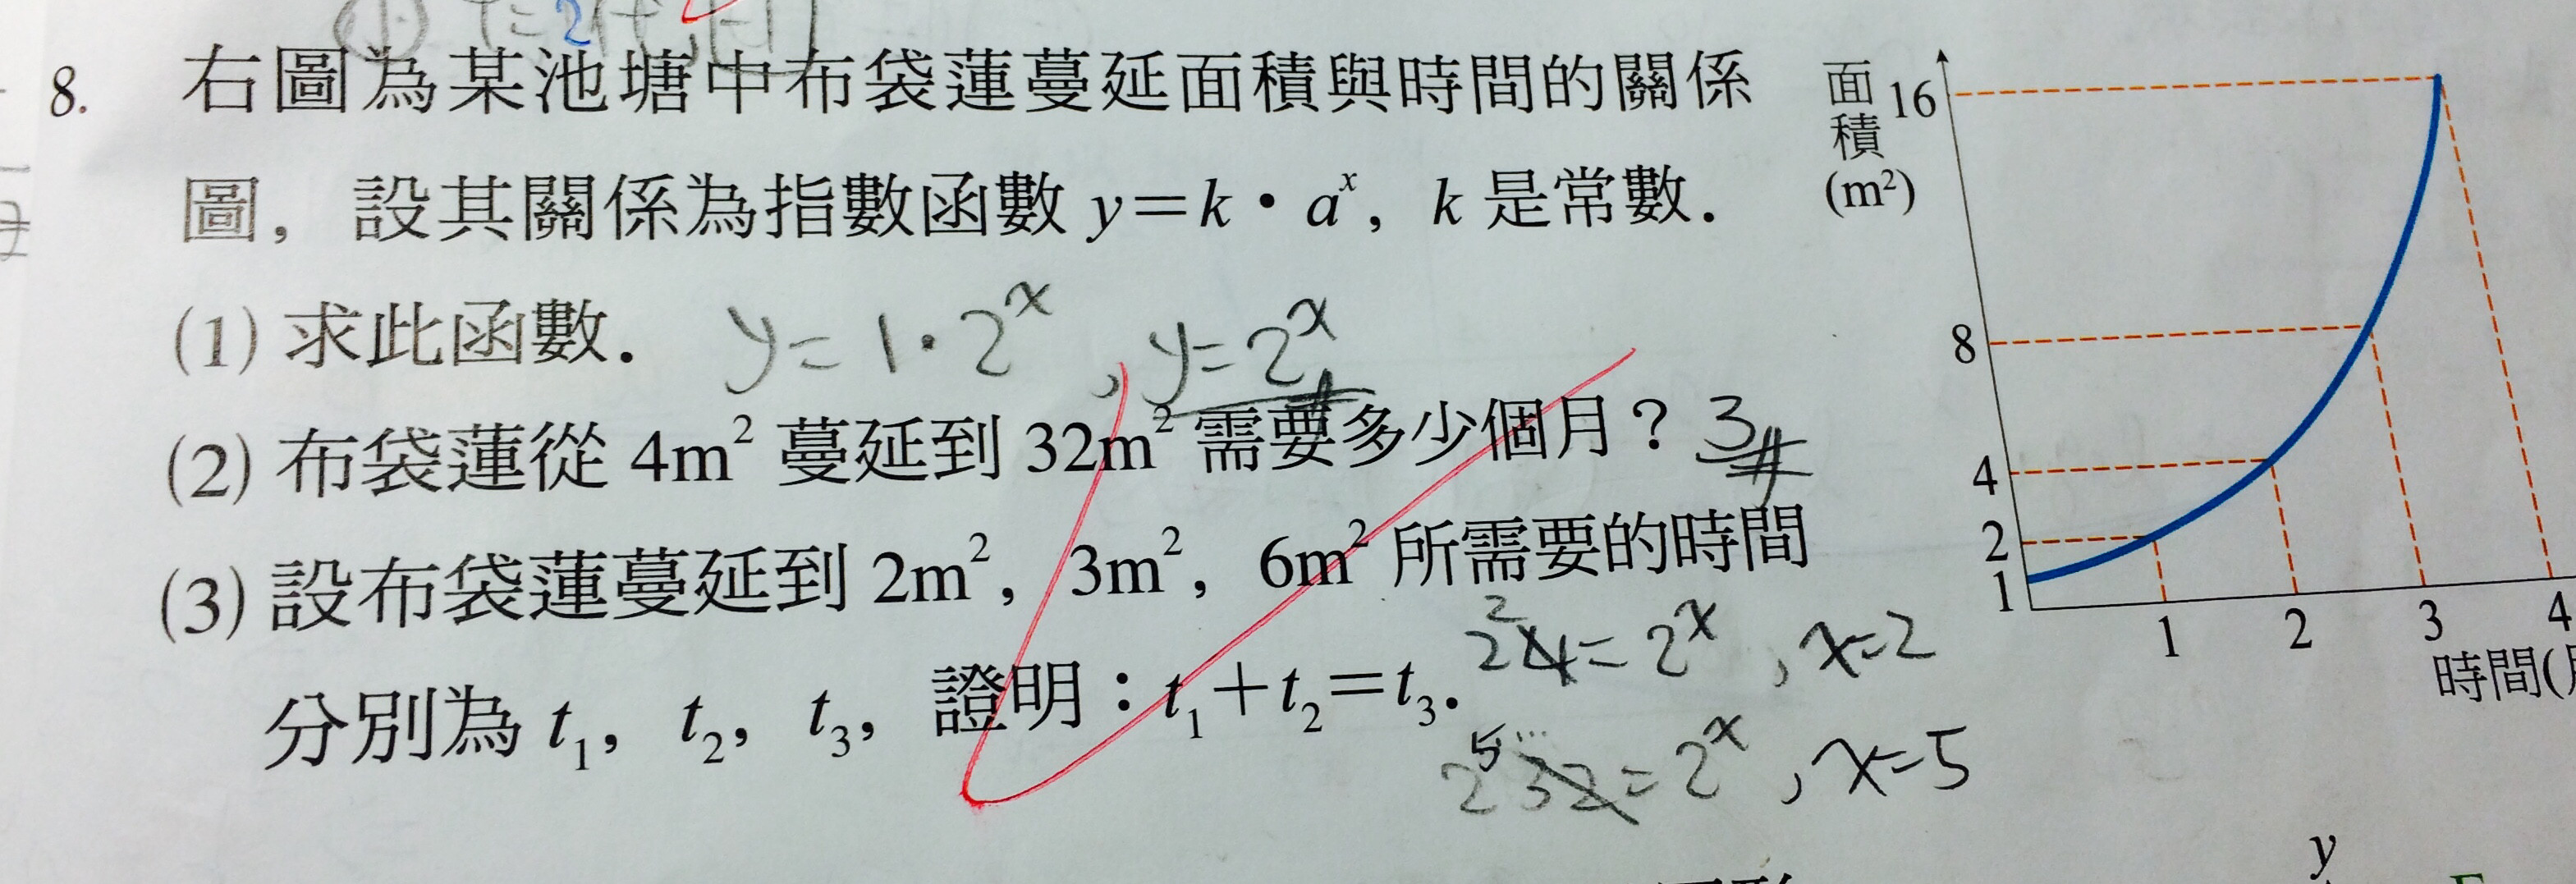 8. 右圖為某池塘中布袋蓮蔓延面積與時間的關係
圖，設其關係為指數函數 y=k·aˣ，k 是常數．
(1) 求此函數． y=1·2ˣ , y=2ˣ
(2) 布袋蓮從 4m² 蔓延到 32m² 需要多少個月？ 3
(3) 設布袋蓮蔓延到 2m²，3m²，6m² 所需要的時間
分別為 t₁，t₂，t₃，證明：t₁+t₂=t₃．
2² 4=2ˣ , x=2
2⁵ 32=2ˣ , x=5
面積
(m²)
16
8
4
2
1
1 2 3 4
時間(
y